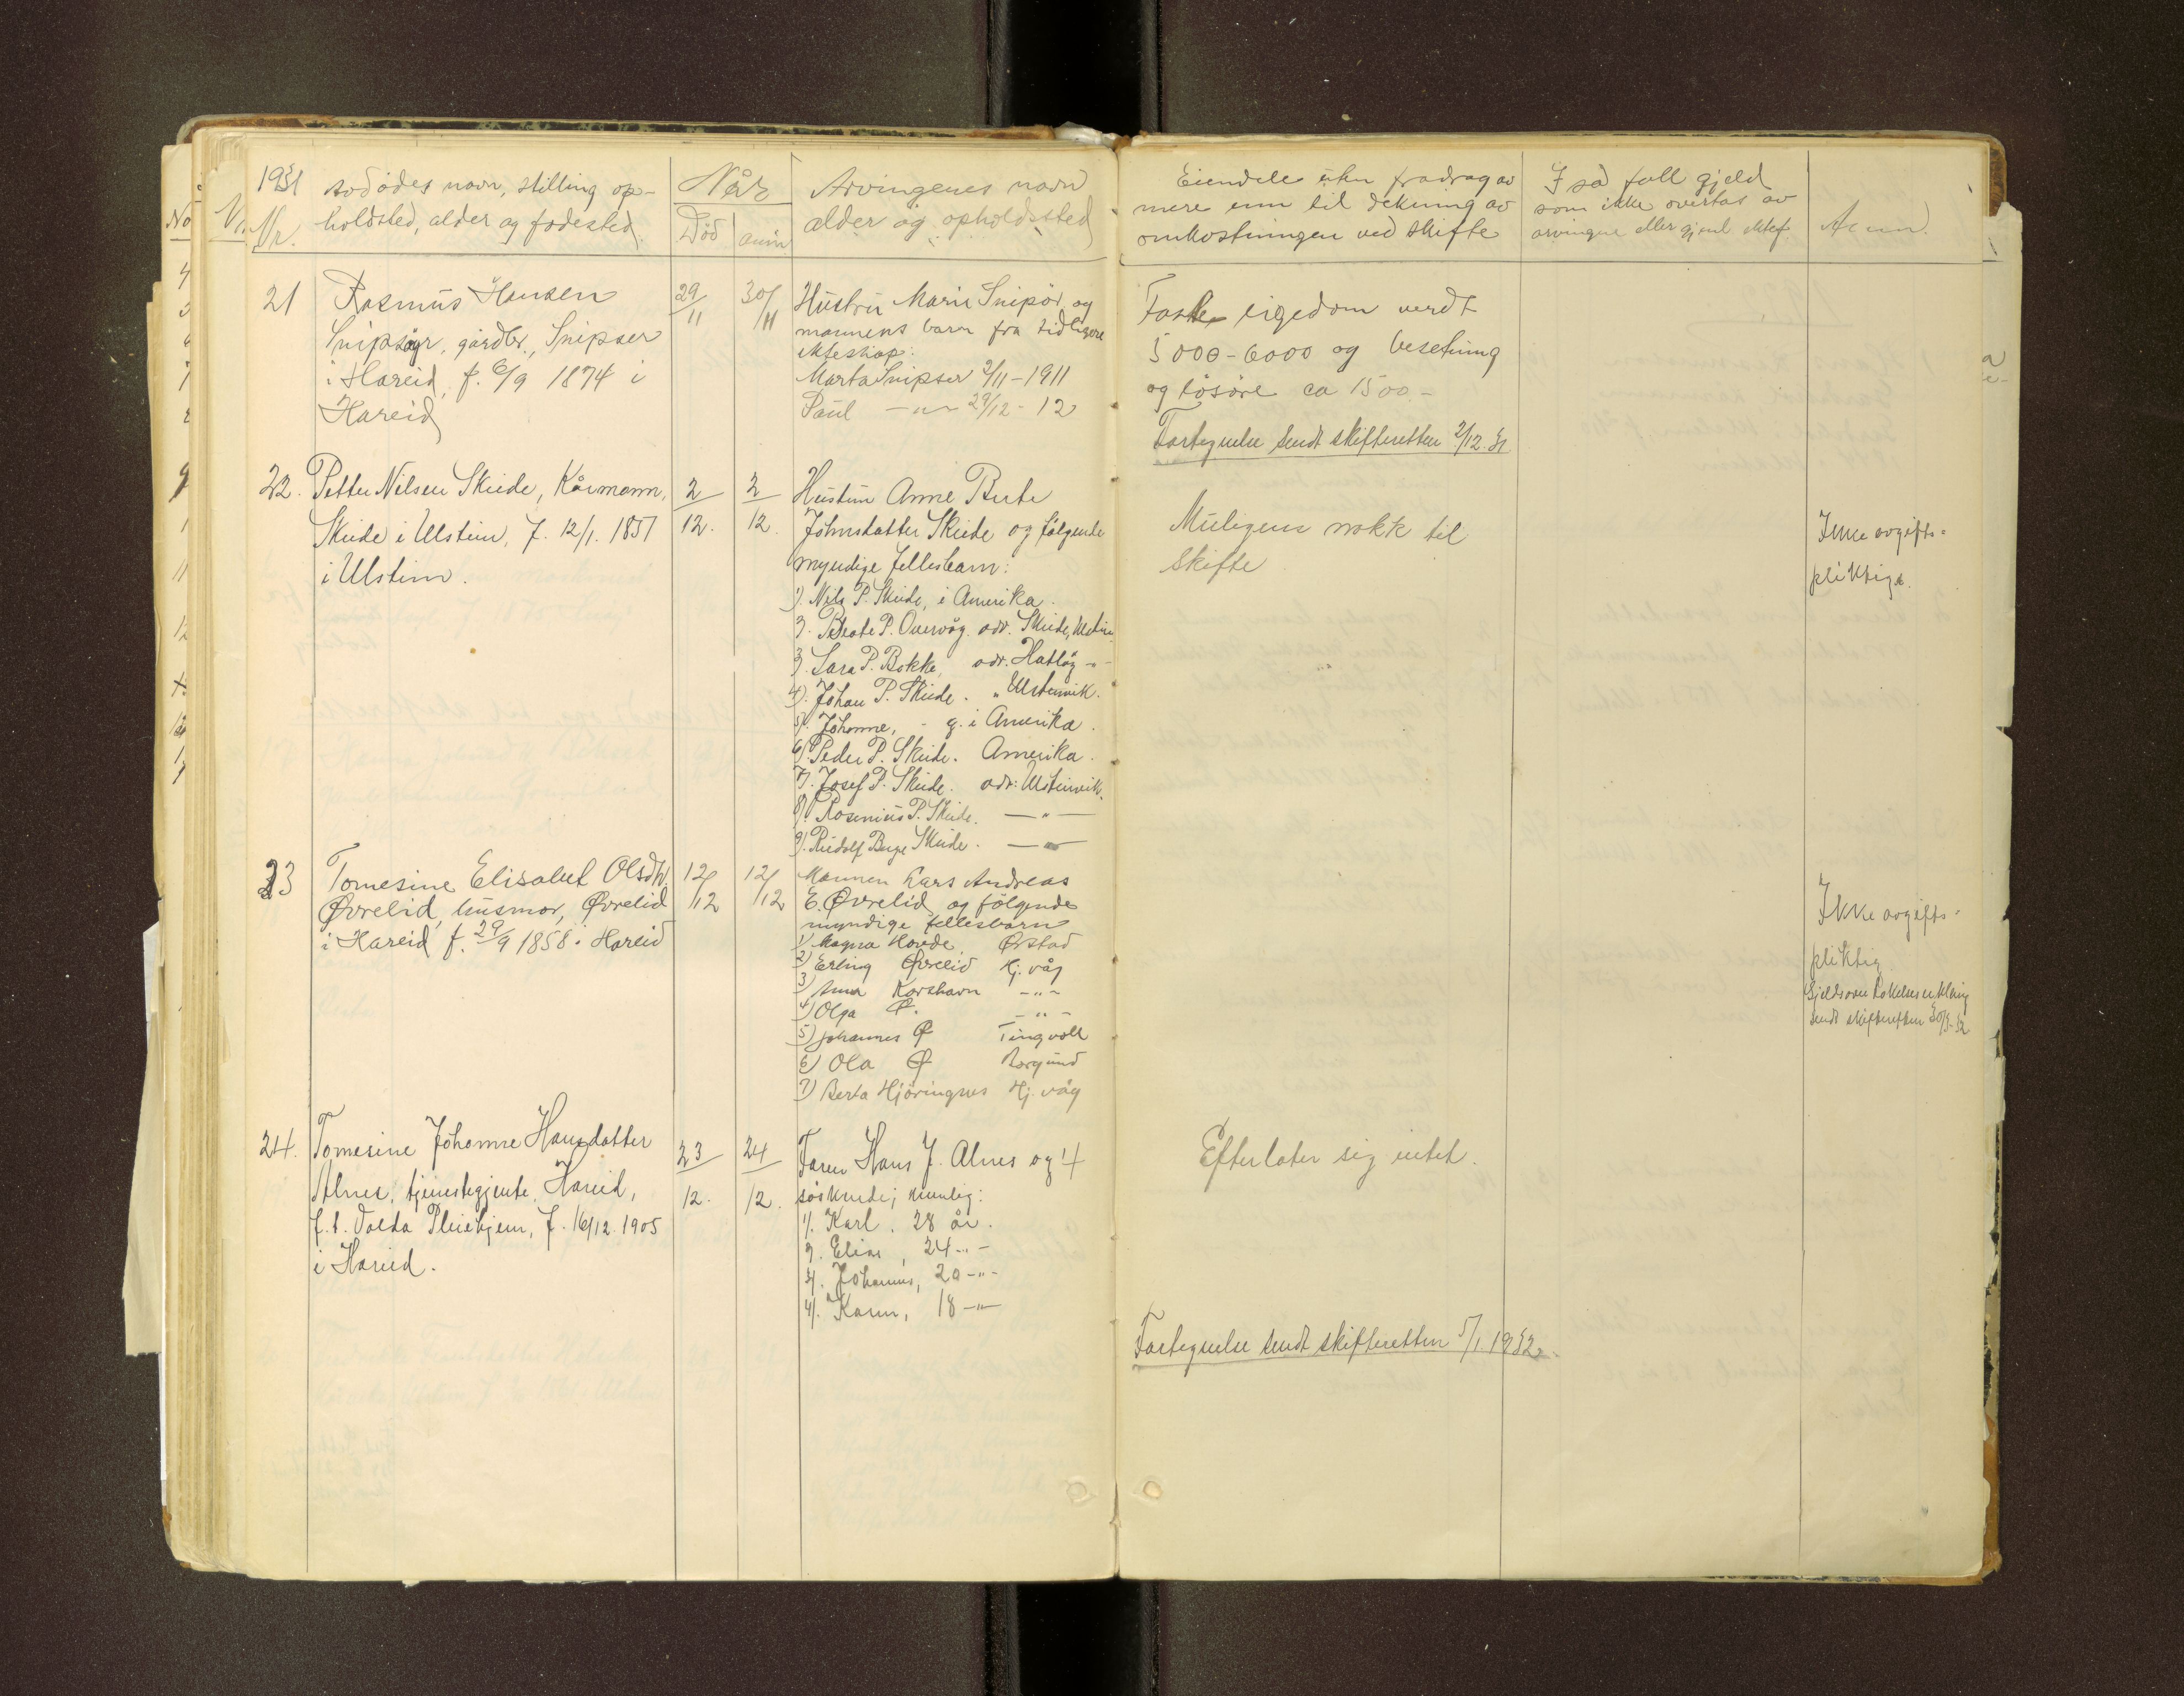 1931
Nr.
avdödes navn, stilling op-
holdsted, alder og fodested.
Når
Död
anm
Arvingenes navn
alder og opholdssted
Eiendele uten fradrag av
mere enn til dekning av
omkostningen ved skifte
I så fall gjeld
som ikke overtas av
arvingene eller gjenl ektef
Anm.
21
Rasmus Hansen
Snipsöyr, gårdbr., Snipsør
i Hareid, f. 6/9 1874 i
Hareid
29/11
30/11
Hustru Marie Snipör og
mannens barn fra tidligere
ekteskap:
Marta Snipsør 2/11-1911
Paul -"- 29/12-12
Faste eigedom verdt
5000-6000 og besetning
og lösöre ca 1500.-
Fortegnelse sendt skifteretten 2/12.31
22.
Petter Nilsen Skeide, Kårmann,
Skeide i Ulstein, f. 12/1. 1851
i Ulstein.
2/12.
2/12.
Hustru Anne Berte
Johnsdatter Skeide og følgende
myndige fellesbarn:
1). Nils P. Skeide, i Amerika.
2. Beate P. Overvåg. adr. Skeide, Ulstein
3. Sara P. Bokke, adr. Hatløy -"-
4). Johan P. Skeide. " Ulsteinvik.
5). Johanne, - g. i Amerika.
6) Peder P. Skeide. Amerika.
7). Josef P. Skeide. adr: Ulsteinvik.
8). Rasmus P. Skeide. -"-
9). Rudolf Berge Skeide. -"-
Muligens nokk til
skifte
Ikke avgifts-
pliktige.
23
Tomesine Elisabet Olsdtr
Øvrelid, husmor, Øvrelid
i Hareid f. 29/9 1858 i Hareid
12/12
12/12
Mannen Lars Andreas
E. Øvrelid og fölgende
myndige fellesbarn
1) Magna Hovde Ørstad
2) Erling Øvrelid Hj. våg
3) Anna Korshavn -"-
4) Olga Ø. -"-
5) Johannes Ø Tingvoll
6) Ola Ø Borgund
7) Berta Hjöringnes Hj. våg
Ikke avgifts-
pliktig
Gjeldsovertakelseserklæring
sendt skifteretten 30/3-32
24.
Tomesine Johanne Hansdatter
Alnes, tjenestegjente, Hareid,
f.t. Volda Pleiehjem, f. 16/12. 1905
i Hareid.
23/12.
24/12.
Faren Hans J. Alnes og 4
søskende; nemlig:
1). Karl. 28 år.
2. Elias, 24 -"-
3). Johannes, 20 -"-
4). Karen, 18 -"-
Efterlater sig intet.
Fortegnelse sendt skifteretten 5/1. 1932.